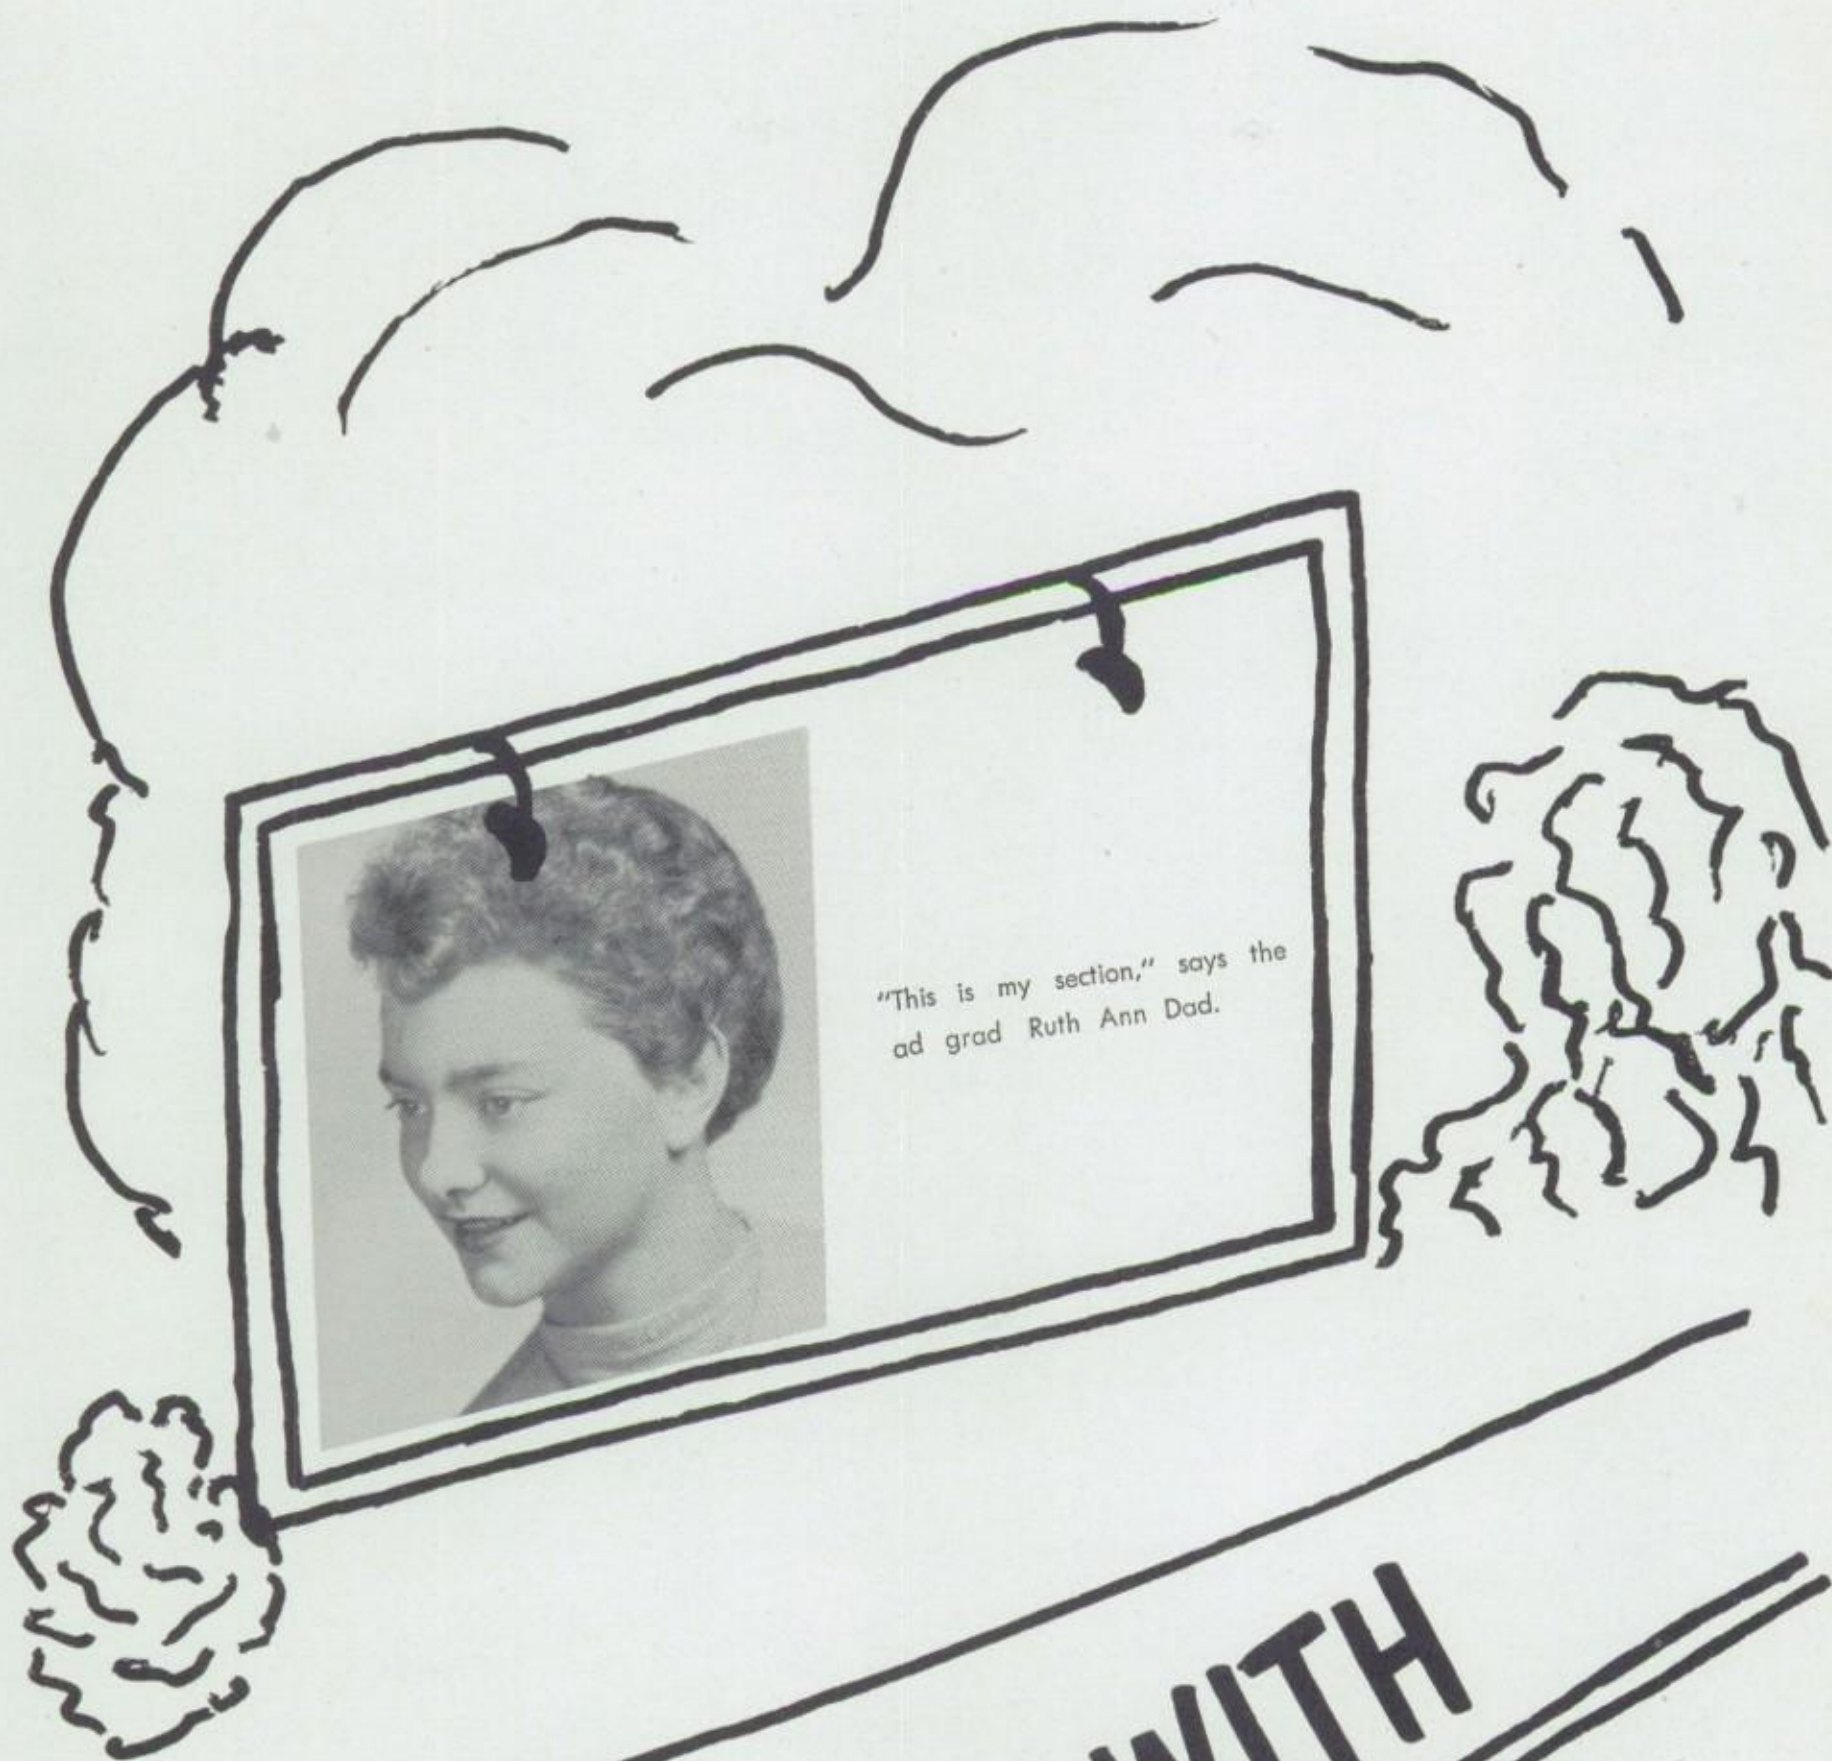 "This is my section," says the
ad grad Ruth Ann Dad.
WITH